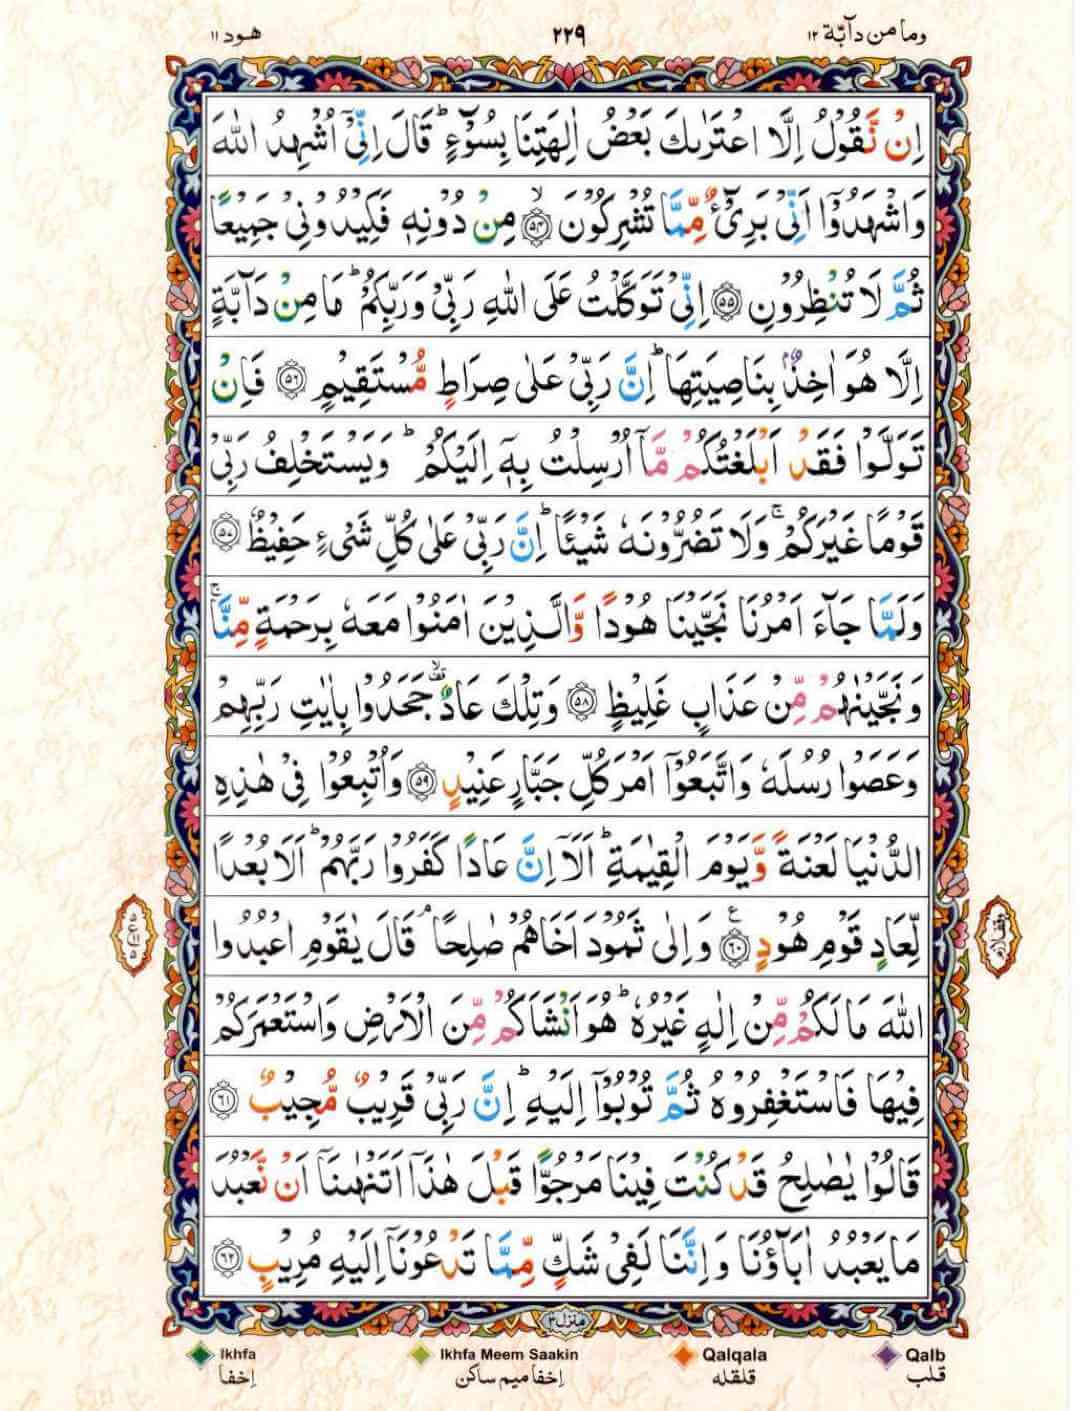 وما من دآبّة ١٢ ٢٢٩ هود ١١
اِنْ نَّقُوْلُ اِلَّا اعْتَرٰىكَ بَعْضُ اٰلِهَتِنَا بِسُوْٓءٍ ؕ قَالَ اِنِّىْۤ اُشْهِدُ اللّٰهَ
وَاشْهَدُوْۤا اَنِّىْ بَرِىْٓءٌ مِّمَّا تُشْرِكُوْنَ ۙ‏﴿۵۴﴾ مِنْ دُوْنِهٖ فَكِيْدُوْنِىْ جَمِيْعًا
ثُمَّ لَا تُنْظِرُوْنِ ﴿۵۵﴾ اِنِّىْ تَوَكَّلْتُ عَلَى اللّٰهِ رَبِّىْ وَرَبِّكُمْ ؕ مَا مِنْ دَآبَّةٍ
اِلَّا هُوَ اٰخِذٌۢ بِنَاصِيَتِهَا ؕ اِنَّ رَبِّىْ عَلٰى صِرَاطٍ مُّسْتَقِيْمٍ ﴿۵۶﴾ فَاِنْ
تَوَلَّوْا فَقَدْ اَبْلَغْتُكُمْ مَّاۤ اُرْسِلْتُ بِهٖۤ اِلَيْكُمْ ؕ وَيَسْتَخْلِفُ رَبِّىْ
قَوْمًا غَيْرَكُمْ ۚ وَلَا تَضُرُّوْنَهٗ شَيْئًا ؕ اِنَّ رَبِّىْ عَلٰى كُلِّ شَىْءٍ حَفِيْظٌ ﴿۵۷﴾
وَلَمَّا جَآءَ اَمْرُنَا نَجَّيْنَا هُوْدًا وَّالَّذِيْنَ اٰمَنُوْا مَعَهٗ بِرَحْمَةٍ مِّنَّا ۚ
وَنَجَّيْنٰهُمْ مِّنْ عَذَابٍ غَلِيْظٍ ﴿۵۸﴾ وَتِلْكَ عَادٌ ۙ جَحَدُوْا بِاٰيٰتِ رَبِّهِمْ
وَعَصَوْا رُسُلَهٗ وَاتَّبَعُوْۤا اَمْرَ كُلِّ جَبَّارٍ عَنِيْدٍ ﴿۵۹﴾ وَاُتْبِعُوْا فِىْ هٰذِهِ
الدُّنْيَا لَعْنَةً وَّيَوْمَ الْقِيٰمَةِ ؕ اَلَاۤ اِنَّ عَادًا كَفَرُوْا رَبَّهُمْ ؕ اَلَا بُعْدًا
لِّعَادٍ قَوْمِ هُوْدٍ ﴿۶۰﴾ وَاِلٰى ثَمُوْدَ اَخَاهُمْ صٰلِحًا ۘ قَالَ يٰقَوْمِ اعْبُدُوا
اللّٰهَ مَا لَكُمْ مِّنْ اِلٰهٍ غَيْرُهٗ ؕ هُوَ اَنْشَاَكُمْ مِّنَ الْاَرْضِ وَاسْتَعْمَرَكُمْ
فِيْهَا فَاسْتَغْفِرُوْهُ ثُمَّ تُوْبُوْۤا اِلَيْهِ ؕ اِنَّ رَبِّىْ قَرِيْبٌ مُّجِيْبٌ ﴿۶۱﴾
قَالُوْا يٰصٰلِحُ قَدْ كُنْتَ فِيْنَا مَرْجُوًّا قَبْلَ هٰذَاۤ اَتَنْهٰىنَاۤ اَنْ نَّعْبُدَ
مَا يَعْبُدُ اٰبَآؤُنَا وَاِنَّنَا لَفِىْ شَكٍّ مِّمَّا تَدْعُوْنَاۤ اِلَيْهِ مُرِيْبٍ ﴿۶۲﴾
منزل ۳
Ikhfa Ikhfa Meem Saakin Qalqala Qalb
اِخفا اِخفا ميم ساكن قلقله قلب